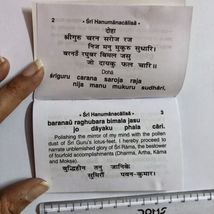 2 • Śrī Hanumānacālīsā •
दोहा
श्रीगुरु चरन सरोज रज
निज मनु मुकुरु सुधारि।
बरनउँ रघुबर बिमल जसु
जो दायकु फल चारि॥
Dohā
śrīguru carana saroja raja
nija manu mukuru sudhāri,
• Śrī Hanumānacālīsā • 3
baranaũ raghubara bimala jasu
jo dāyaku phala cāri.
Polishing the mirror of my mind with the pollen
dust of Śrī Guru's lotus-feet, I hereby proceed to
narrate unblemished glory of Śrī Rāma, the bestower
of fourfold accomplishments (Dharma, Artha, Kāma
and Mokṣa).
बुद्धिहीन तनु जानिके
सुमिरौं पवन-कुमार।